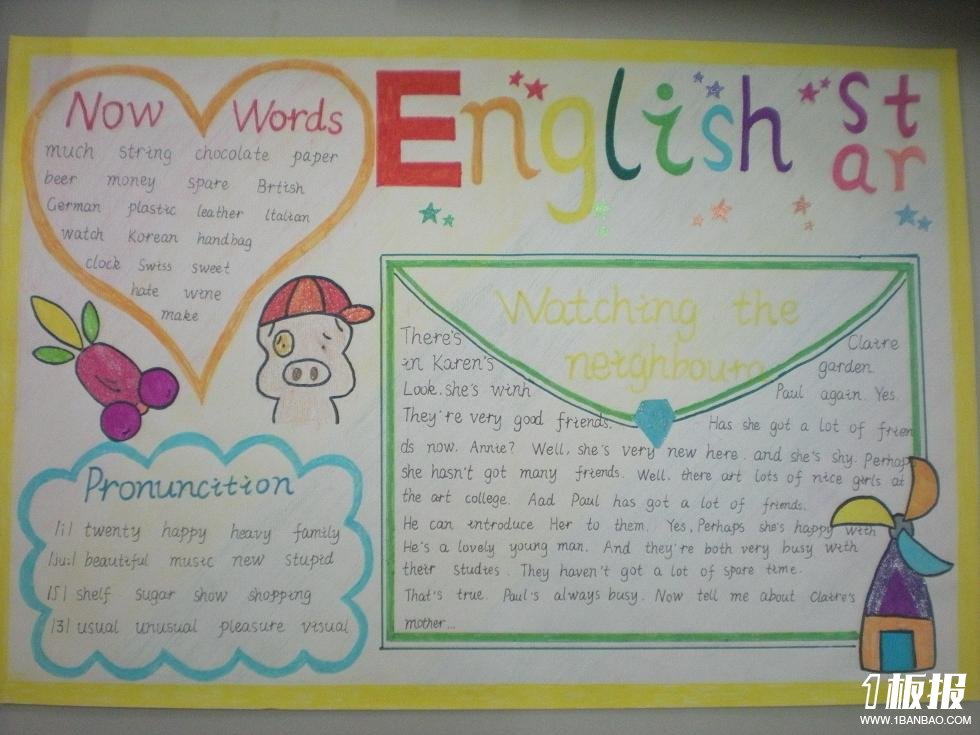 English
St
ar
Now Words
much string chocolate paper
beer money spare Brtish
German plastic leather Italian
watch Korean handbag
clock Swiss sweet
hate wine
make
Pronuncition
/i/ twenty happy heavy family
/ju:/ beautiful music new stupid
/ʃ/ shelf sugar show shopping
/ʒ/ usual unusual pleasure visual
Watching the
neighbours
There's Claire
in Karen's garden.
Look, she's with Paul again. Yes.
They're very good friends. Has she got a lot of frien
ds now, Annie? Well, she's very new here, and she's shy. Perhaps
she hasn't got many friends. Well, there art lots of nice girls at
the art college. Aad Paul has got a lot of friends.
He can introduce Her to them. Yes, Perhaps she's happy with
He's a lovely young man. And they're both very busy with
their studies. They haven't got a lot of spare time.
That's true. Paul's always busy. Now tell me about Claire's
mother...
1板报
WWW.1BANBAO.COM